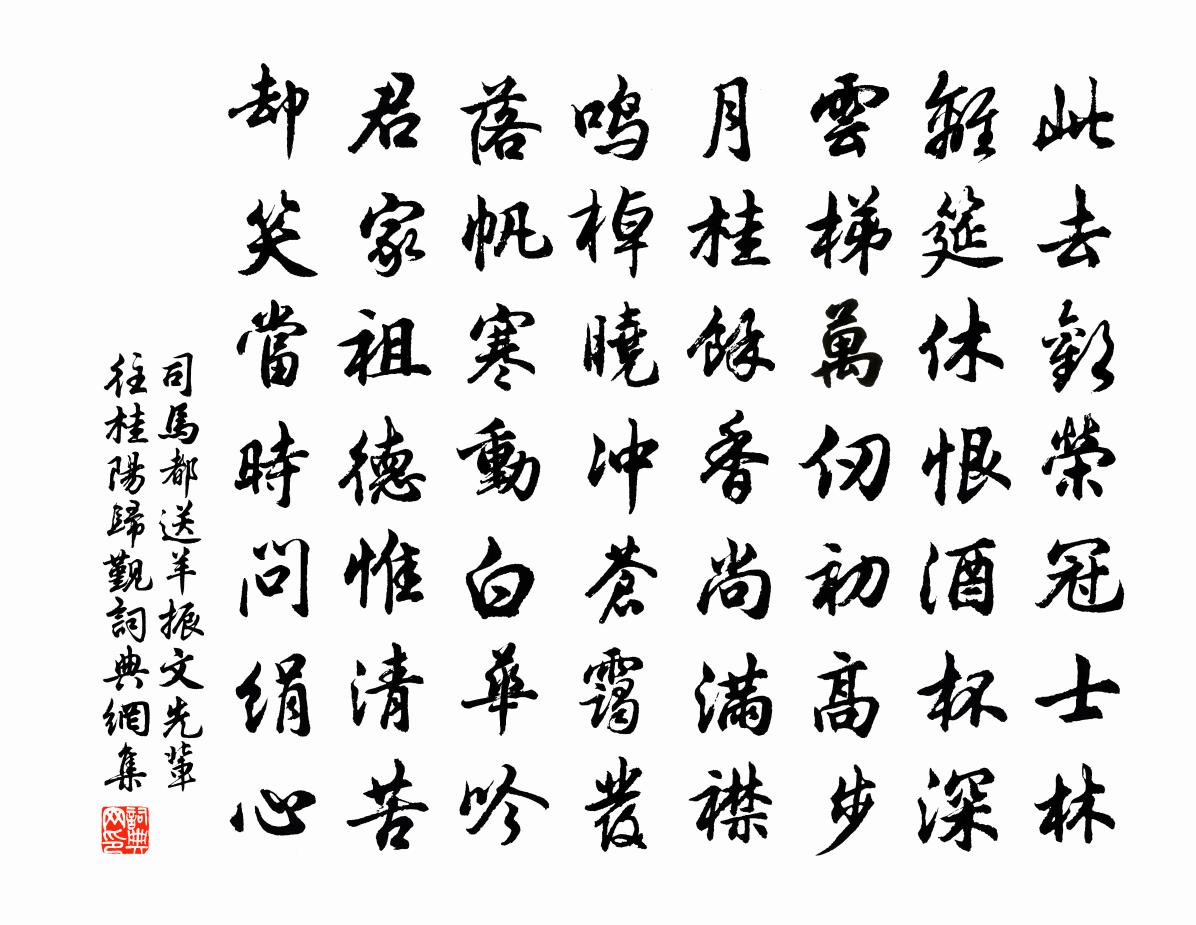 此去歡榮冠士林
離筵休恨酒杯深
雲梯萬仞初高步
月桂餘香尚滿襟
鳴棹曉冲蒼靄發
落帆寒動白華吟
君家祖德惟清苦
却笑當時問絹心
司馬都送羊振文先輩
往桂陽歸覲詞典網集
詞典
网印